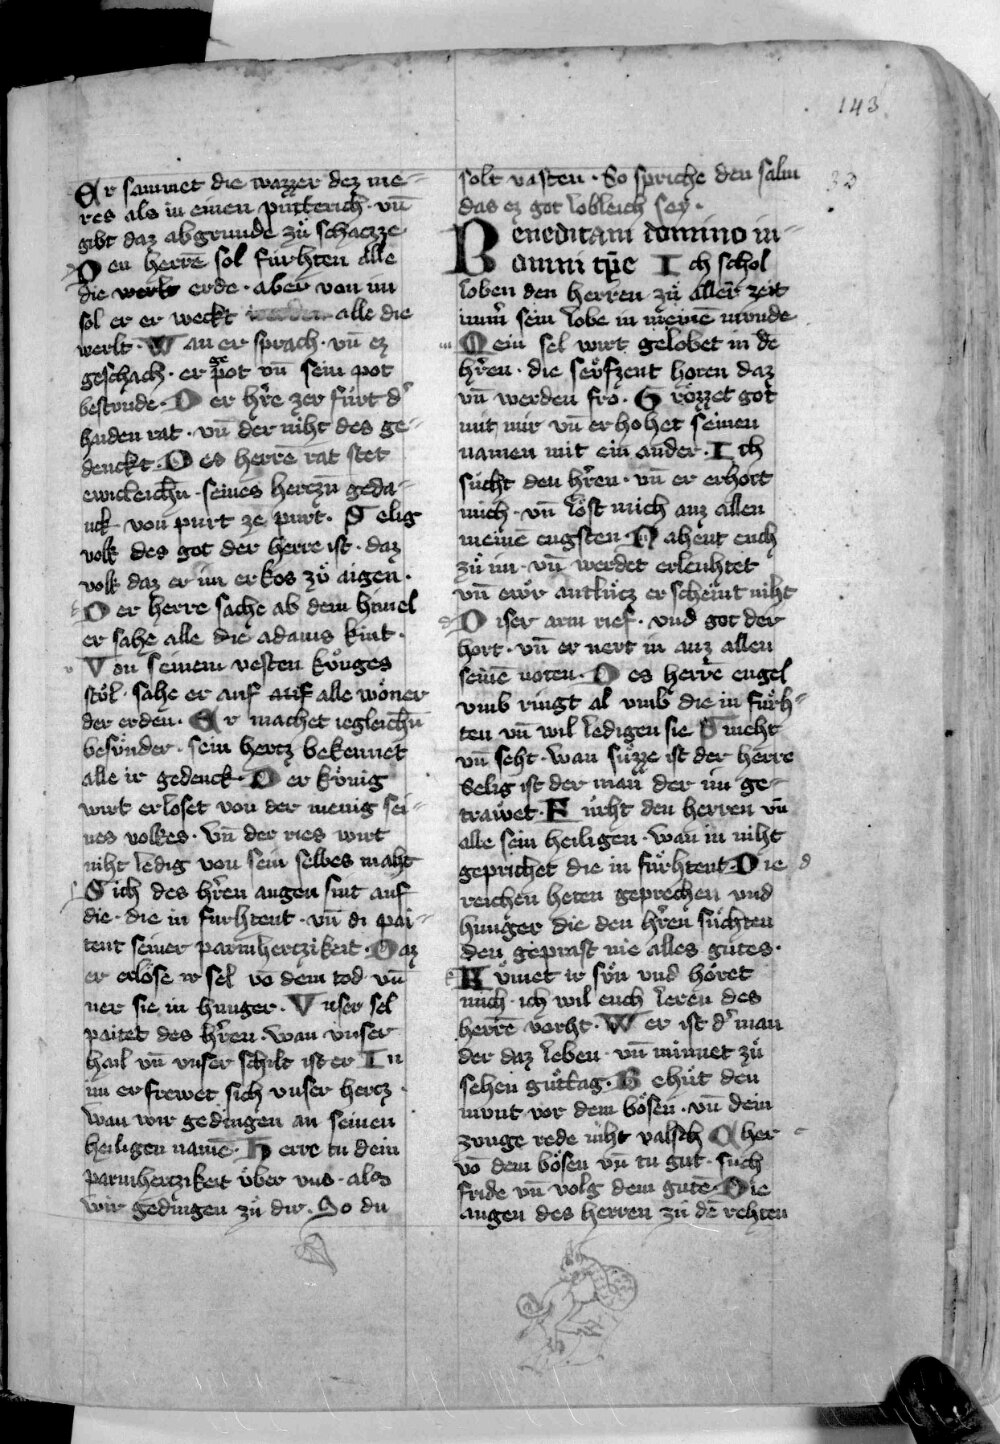 143
Er sammet die wazzer dez me-
res als in einen puͤtterich · vnd̄
gibt daz abgrunde zuͤ schaczze
Den herre sol fuͤrhten alle
die werlt erde · aber von im
sol er er weckt alle die
werlt · Wan er sprach · vn̄ ez
geschach · er pot vn̄ sein pot
bestuͦnde · Der hr̄e zer fuͤrt dˢ
haiden rat · vn̄ der niht des ge-
denckt · Des herrē rat stet
ewicleichn̄ · seines herczn geda-
nck von purt ze purt · Selig
volk des got der herre ist · daz
volk daz er im er kos zuͤ aigen ·
Der herre sache ab dem himel
er sahe alle die adams kint ·
Von seinem vesten kuͤnges
stuͦl · sahe er auf auf alle woͤner
der erden · Er machet iegleichn̄
besuͦnder · sein hertz bekennet
alle ir gedenck · Der kuͤnig
wirt erloset von der menig sei-
nes volkes · Vn̄ der ries wirt
niht ledig von sein selbes maht
Sich des hr̄en augen sint auf
die · die in furhtent · vn̄ di pai-
tent seiner parmhertzikeit · Daz
er erloͤse ir sel vō dem tod vn̄
ner sie in hunger · Vnser sel
paitet des hr̄en · wan vnser
hail vn̄ vnser schilt ist er In
im erfrewet sich vnser hertz ·
wan wir gedingen an seinen
heiligen namē · Herre tu dein
parmhertzikeit uͤber vns · als
wir gedingen zuͤ dir · So du
solt vasten · So spriche den salm
das ez got lobleich sey ·
32
Benedicam domino in
omni tp̄e Ich schol
loben den herren zuͤ aller zeit
imm̄ sein lobe in meinē munde
Mein sel wirt gelobet in dē
hr̄en · die seuͤfzent horen daz
vn̄ werden fro · Groͤzzet got
mit mir vn̄ er hohet seinen
namen mit ein ander · Ich
suͤcht den hr̄en · vn̄ er erhort
mich · vn̄ loͤst mich auz allen
meinē engsten · Nahent euch
zuͤ im · vn̄ werdet erleuhtet
vn̄ ewr̄ antluͤcz er scheint niht
Diser arm rief · vnd got der
hort · vn̄ er nert in auz allen
seinē noten · Des herrē engel
vmb ringt al vmb die in fuͤrh-
ten vn̄ wil ledigen sie Smeht
vn̄ seht · wan suͤzze ist der herre
Selig ist der man der im ge-
trawet · Fuͤrht den herren vn̄
alle sein heiligen · wan in niht
geprichet die in fuͤrhtent · Die
reichen heten geprechen vnd
hunger die den hr̄en suͤchten
den geprast nie alles guͤtes ·
Kuͤmet ir suͤn vnd hoͤret
mich · ich wil euch leren des
herrē vorht · Wer ist dˢ man
der daz leben · vn̄ minnet zuͤ
sehen guͤt tag · Behuͤt den
munt vor dem boͤsen · vn̄ dein
zunge rede niht valsch Cher
vō dem boͤsen vn̄ tu gut · such
fride vn̄ volg dem gutē · Die
augen des herren zu dē rehten